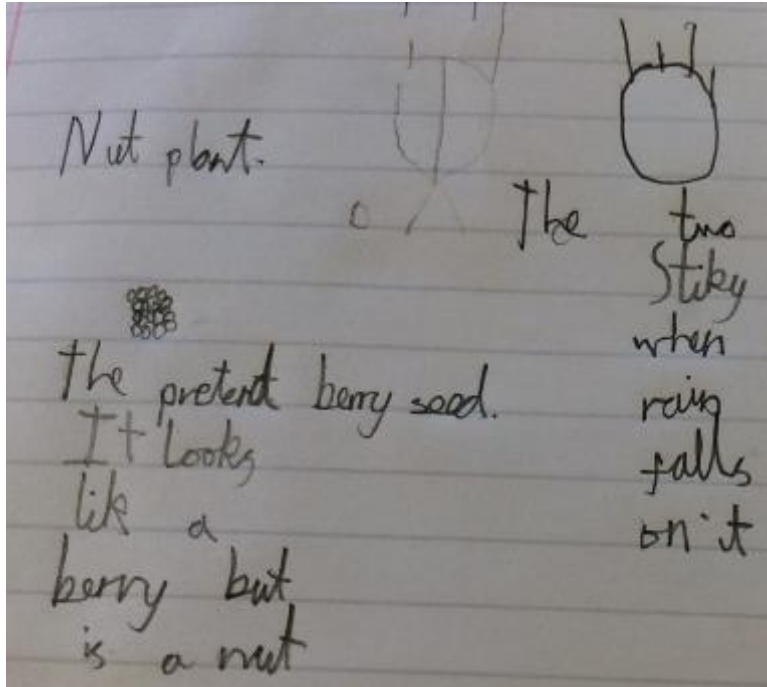 Nut plant.
The two
Stiky
when
rain
falls
on it
the pretend berry seed.
It Looks
lik a
berry but
is a nut